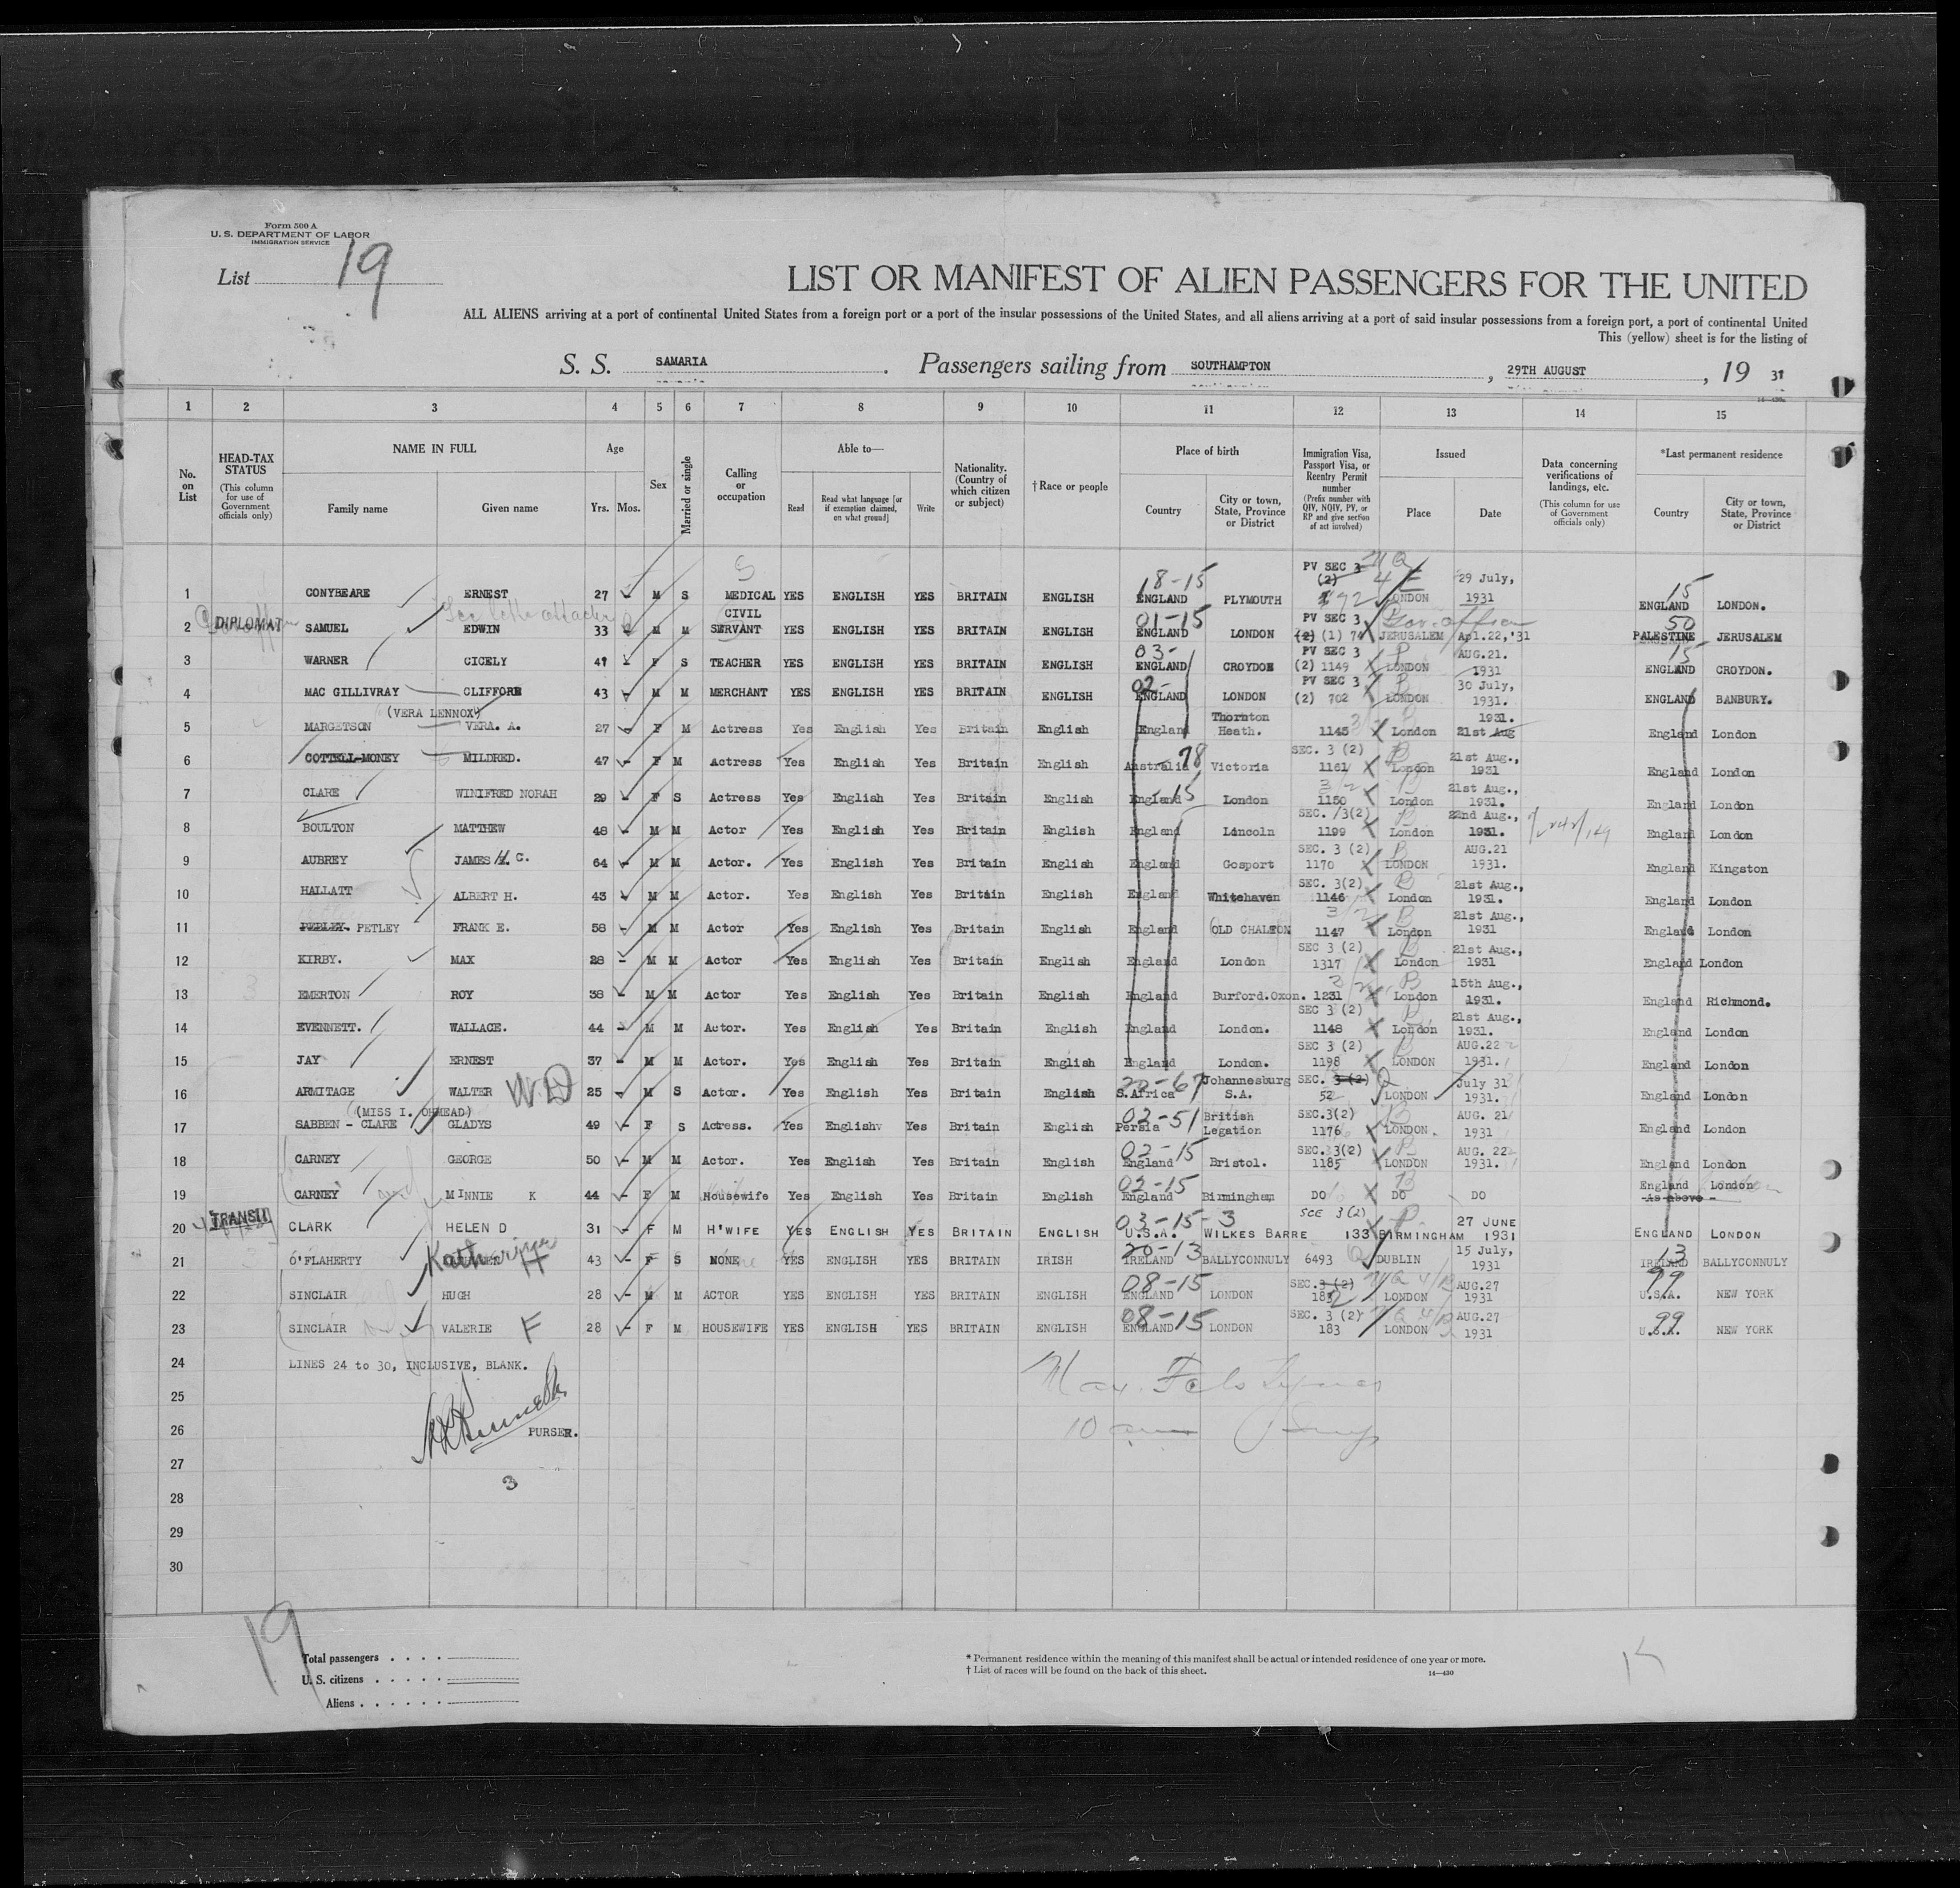 Form 500 A
U. S. DEPARTMENT OF LABOR
IMMIGRATION SERVICE
List 19
LIST OR MANIFEST OF ALIEN PASSENGERS FOR THE UNITED
ALL ALIENS arriving at a port of continental United States from a foreign port or a port of the insular possessions of the United States, and all aliens arriving at a port of said insular possessions from a foreign port, a port of continental United
This (yellow) sheet is for the listing of
S. S. SAMARIA. Passengers sailing from SOUTHAMPTON, 29TH AUGUST, 19 31
1 2 3 4 5 6 7 8 9 10 11 12 13 14 15
No. on List
HEAD-TAX STATUS (This column for use of Government officials only)
NAME IN FULL Family name Given name
Age Yrs. Mos.
Sex
Married or single
Calling or occupation
Able to— Read Read what language [or if exemption claimed, on what ground] Write
Nationality. (Country of which citizen or subject)
† Race or people
Place of birth Country City or town, State, Province or District
Immigration Visa, Passport Visa, or Reentry Permit number (Prefix number with QIV, NQIV, PV, or RP and give section of act involved)
Issued Place Date
Data concerning verifications of landings, etc. (This column for use of Government officials only)
*Last permanent residence Country City or town, State, Province or District
1 CONYBEARE ERNEST 27 M S MEDICAL YES ENGLISH YES BRITAIN ENGLISH 18-15 ENGLAND PLYMOUTH PV SEC 3 (2) 92 LONDON 29 July, 1931 15 ENGLAND LONDON.
2 DIPLOMAT SAMUEL EDWIN 33 M M CIVIL SERVANT YES ENGLISH YES BRITAIN ENGLISH 01-15 ENGLAND LONDON PV SEC 3 (2) (1) 74 JERUSALEM Apl.22,'31 50 PALESTINE JERUSALEM
3 WARNER CICELY 41 F S TEACHER YES ENGLISH YES BRITAIN ENGLISH 03- ENGLAND CROYDON PV SEC 3 (2) 1149 LONDON AUG.21. 1931 15 ENGLAND CROYDON.
4 MAC GILLIVRAY CLIFFORD 43 M M MERCHANT YES ENGLISH YES BRITAIN ENGLISH 02- ENGLAND LONDON PV SEC 3 (2) 702 LONDON 30 July, 1931. ENGLAND BANBURY.
(VERA LENNOX)
5 MARGETSON VERA. A. 27 F M Actress Yes English Yes Britain English England Thornton Heath. 1145 London 21st Aug 1931. England London
6 COTTELL-MONEY MILDRED. 47 F M Actress Yes English Yes Britain English Australia 78 Victoria SEC. 3 (2) 1161 London 21st Aug., 1931 England London
7 CLARE WINIFRED NORAH 29 F S Actress Yes English Yes Britain English England 15 London 1150 London 21st Aug., 1931. England London
8 BOULTON MATTHEW 48 M M Actor Yes English Yes Britain English England Lincoln SEC. 3(2) 1199 London 22nd Aug., 1931. England London
9 AUBREY JAMES H. C. 64 M M Actor. Yes English Yes Britain English England Gosport SEC. 3 (2) 1170 LONDON AUG.21 1931. England Kingston
10 HALLATT ALBERT H. 43 M M Actor. Yes English Yes Britain English England Whitehaven SEC. 3(2) 1146 London 21st Aug., 1931. England London
11 PETLEY FRANK E. 58 M M Actor Yes English Yes Britain English England OLD CHALTON 1147 London 21st Aug., 1931 England London
12 KIRBY. MAX 28 M M Actor Yes English Yes Britain English England London SEC 3 (2) 1317 London 21st Aug., 1931 England London
13 EMERTON ROY 38 M M Actor Yes English Yes Britain English England Burford.Oxon. 1231 London 15th Aug., 1931. England Richmond.
14 EVENNETT. WALLACE. 44 M M Actor. Yes English Yes Britain English England London. SEC 3 (2) 1148 London 21st Aug., 1931. England London
15 JAY ERNEST 37 M M Actor. Yes English Yes Britain English England London. SEC 3 (2) 1198 LONDON AUG.22 1931. England London
16 ARMITAGE WALTER 25 M S Actor. Yes English Yes Britain English 22-67 S.Africa Johannesburg S.A. SEC. 3 (2) 52 LONDON July 31 1931. England London
(MISS I. OHMEAD)
17 SABBEN - CLARE GLADYS 49 F S Actress. Yes English Yes Britain English 02-51 Persia British Legation SEC.3(2) 1176 LONDON. AUG. 21 1931 England London
18 CARNEY GEORGE 50 M M Actor. Yes English Yes Britain English 02-15 England Bristol. SEC. 3(2) 1185 LONDON AUG. 22 1931. England London
19 CARNEY MINNIE K 44 F M Housewife Yes English Yes Britain English 02-15 England Birmingham DO DO DO England London As above -
20 TRANSIT CLARK HELEN D 31 F M H'WIFE YES ENGLISH YES BRITAIN ENGLISH 03-15-3 U.S.A. WILKES BARRE SCE 3(2) 133 BIRMINGHAM 27 JUNE 1931 ENGLAND LONDON
21 O'FLAHERTY Katherine 43 F S NONE YES ENGLISH YES BRITAIN IRISH 20-13 IRELAND BALLYCONNULY 6493 DUBLIN 15 July, 1931 13 IRELAND BALLYCONNULY
22 SINCLAIR HUGH 28 M M ACTOR YES ENGLISH YES BRITAIN ENGLISH 08-15 ENGLAND LONDON SEC. 3 (2) 182 LONDON AUG.27 1931 99 U.S.A. NEW YORK
23 SINCLAIR VALERIE F 28 F M HOUSEWIFE YES ENGLISH YES BRITAIN ENGLISH 08-15 ENGLAND LONDON SEC. 3 (2) 183 LONDON AUG.27 1931 99 U.S.A. NEW YORK
24 LINES 24 to 30, INCLUSIVE, BLANK.
25
26 PURSER.
27
3
28
29
30
19
Total passengers . . . .
U. S. citizens . . . . .
Aliens . . . . . .
* Permanent residence within the meaning of this manifest shall be actual or intended residence of one year or more.
† List of races will be found on the back of this sheet. 14—430